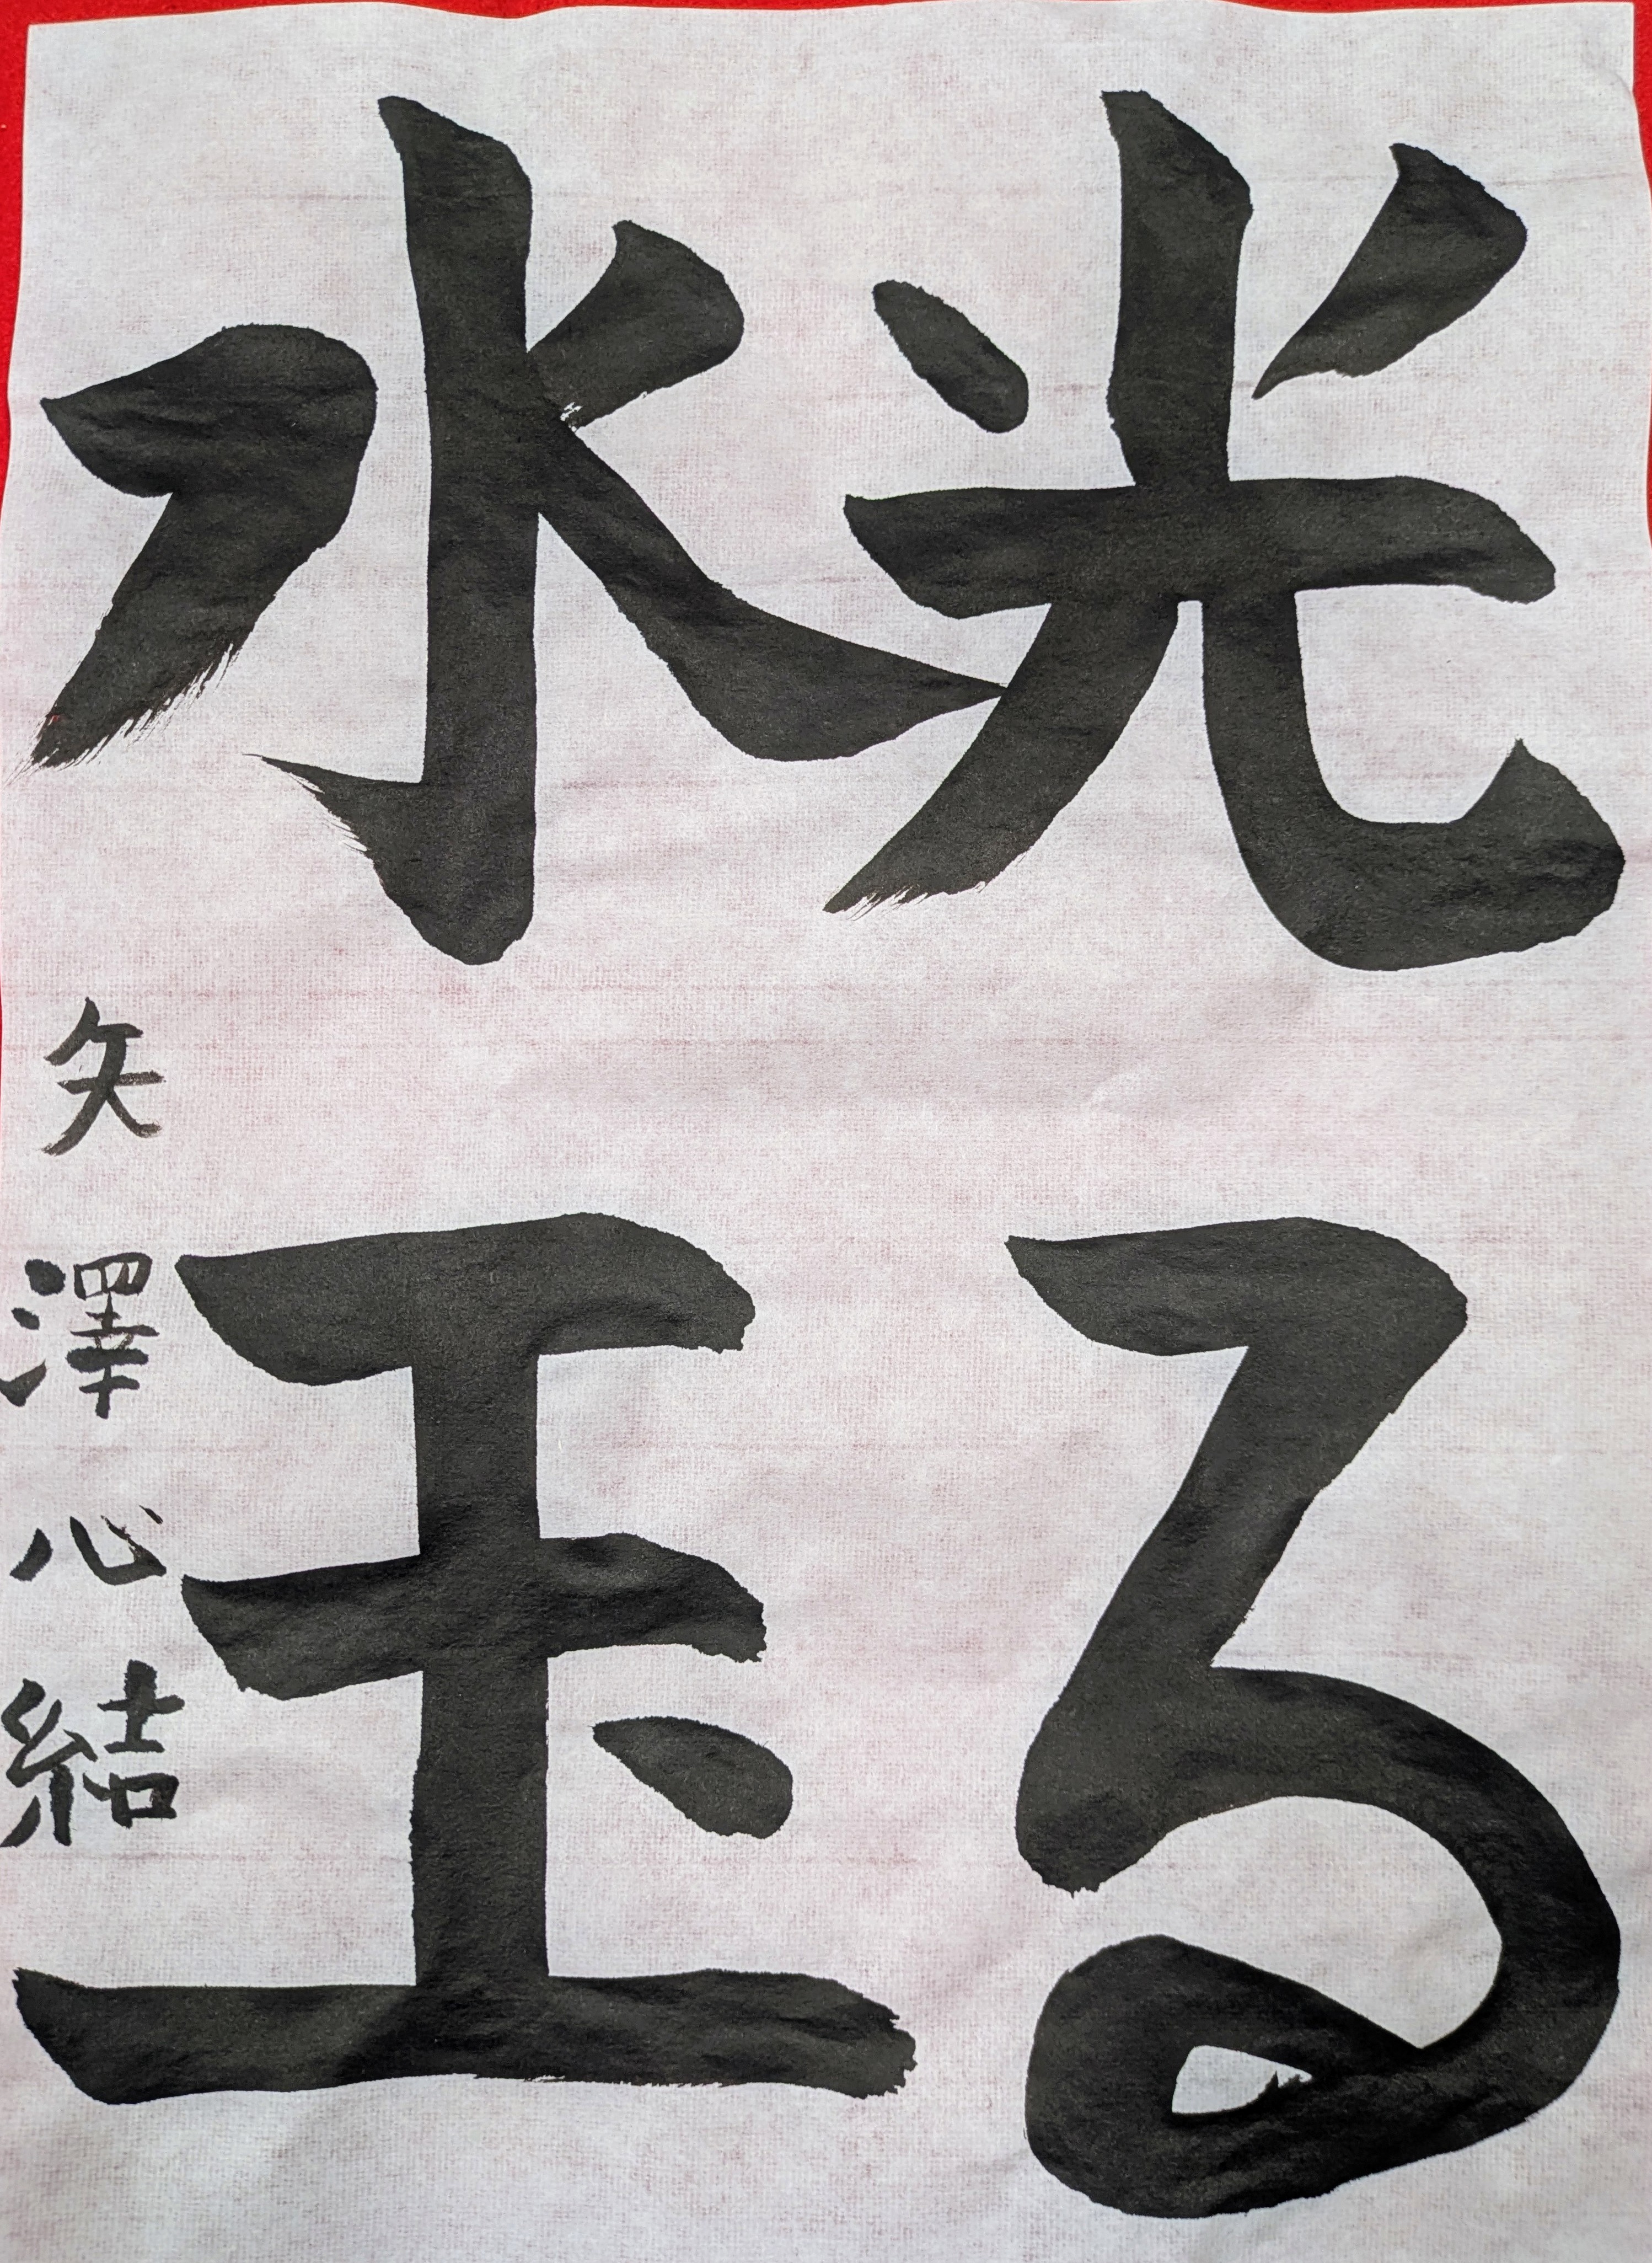 光る
水玉
矢澤心結